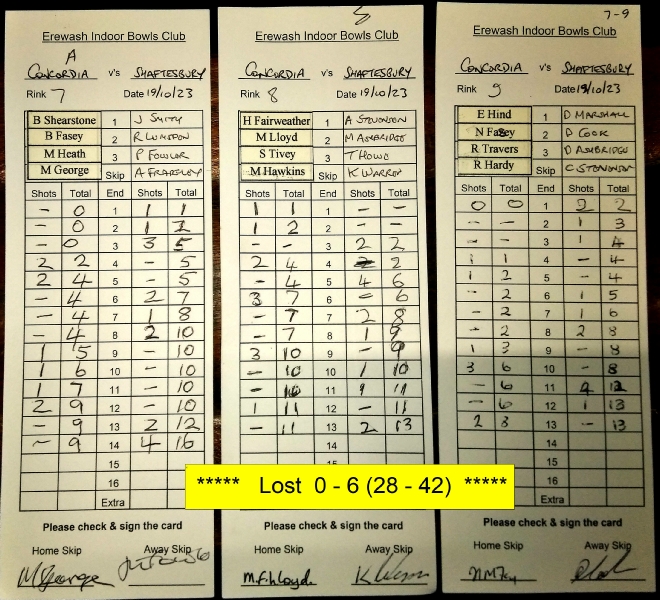 Erewash Indoor Bowls Club
A
CONCORDIA v's SHAFTESBURY
Rink 7 Date 19/10/23
B Shearstone 1 J SMITH
B Fasey 2
M Heath 3 P FOWLOR
M George Skip A
Shots Total End Shots Total
- 0 1 1 1
- 0 2 1 2
- 0 3 3 5
2 2 4 - 5
2 4 5 - 5
- 4 6 2 7
- 4 7 1 8
- 4 8 2 10
1 5 9 - 10
1 6 10 - 10
1 7 11 - 10
2 9 12 - 10
- 9 13 2 12
- 9 14 4 16
15
16
Extra
Please check & sign the card
Home Skip Away Skip
M George
Erewash Indoor Bowls Club
CONCORDIA v's SHAFTESBURY
Rink 8 Date 19/10/23
H Fairweather 1 A STEVENSON
M Lloyd 2 M ASHBRIDGE
S Tivey 3 T HOWE
M Hawkins Skip K WARREN
Shots Total End Shots Total
1 1 1 - -
1 2 2 - -
- - 3 2 2
2 4 4 - 2
- 4 5 4 6
3 7 6 - 6
- 7 7 2 8
- 7 8 1 9
3 10 9 - 9
- 10 10 1 10
- 10 11 1 11
1 11 12 - 11
- 11 13 2 13
14
15
Please check & sign the card
Home Skip Away Skip
M.F.h Lloyd.
7-9
Erewash Indoor Bowls Club
CONCORDIA v's SHAFTESBURY
Rink 9 Date 19/10/23
E Hind 1 D MARSHALL
N Fasey 2 D COOK
R Travers 3 D ASHBRIDGE
R Hardy Skip C STEVENSON
Shots Total End Shots Total
0 0 1 2 2
- - 2 1 3
- - 3 1 4
1 1 4 - 4
1 2 5 - 4
- 2 6 1 5
- 2 7 1 6
- 2 8 2 8
1 3 9 - 8
3 6 10 - 8
- 6 11 4 12
- 6 12 1 13
2 8 13 - 13
14
15
16
Extra
Please check & sign the card
Home Skip Away Skip
***** Lost 0 - 6 (28 - 42) *****